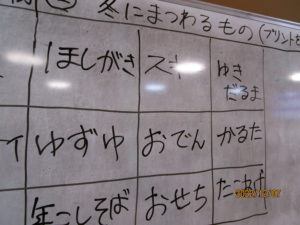 冬にまつわるもの(プリント
ほしがき スキー ゆき
だるま
イ ゆずゆ おでん かるた
年こしそば おせち たこあげ